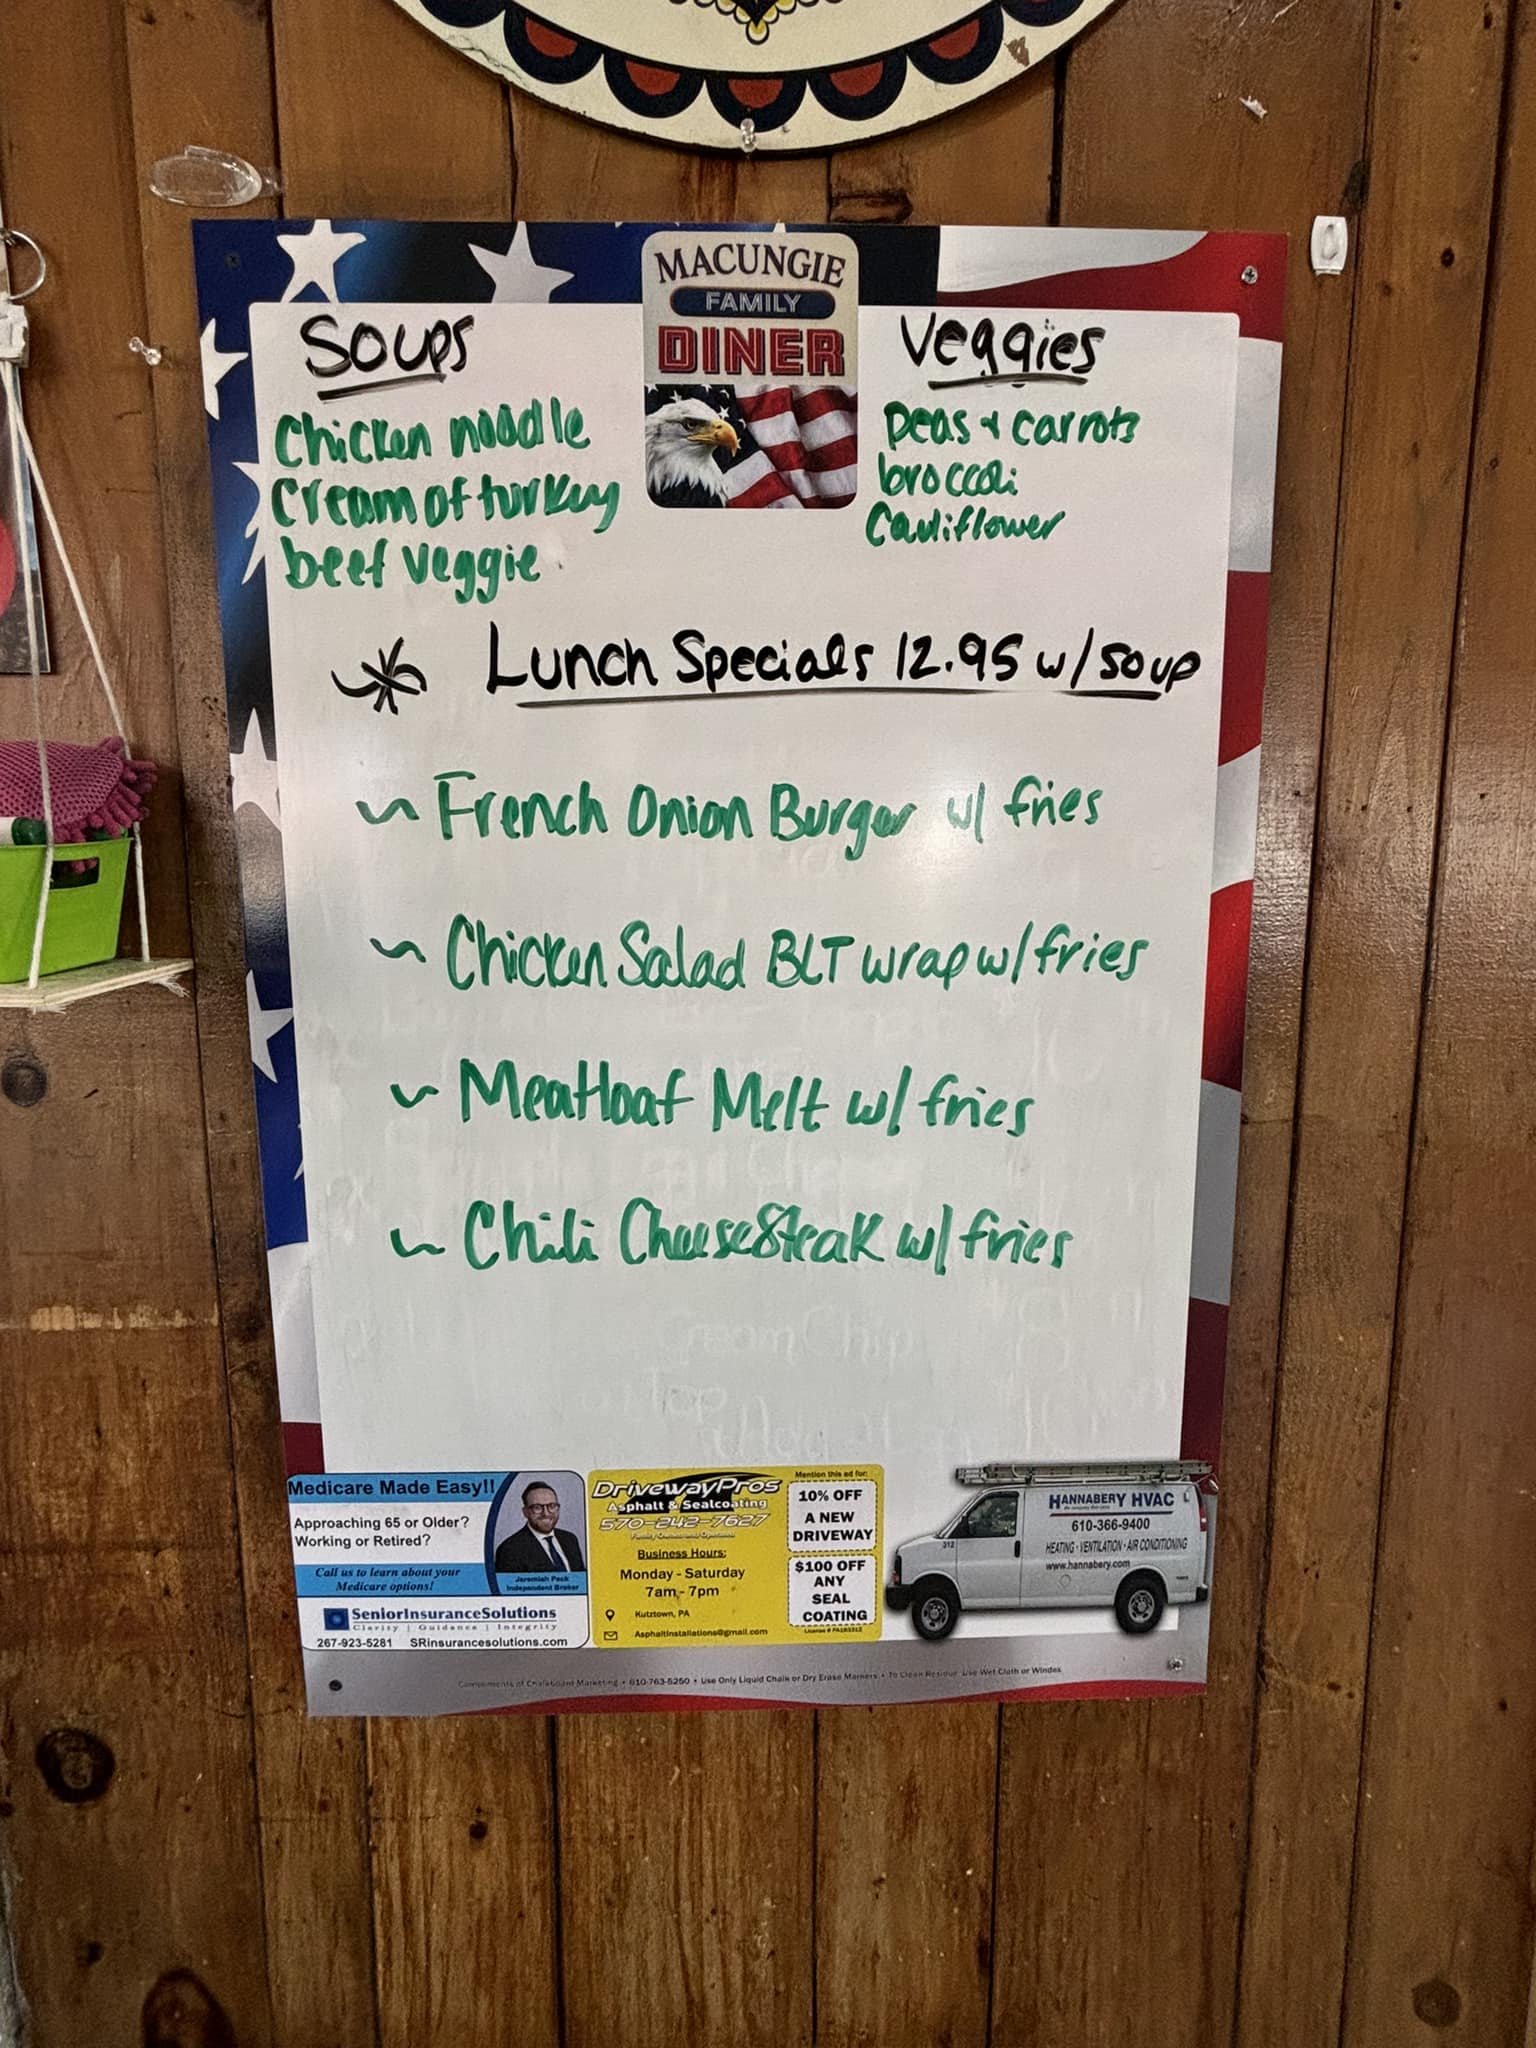 MACUNGIE
FAMILY
DINER
Soups
Chicken noodle
Cream of turkey
beef veggie
Veggies
peas & carrots
broccoli
Cauliflower
Lunch Specials 12.95 w/ soup
~ French Onion Burger w/ fries
~ Chicken Salad BLT wrap w/ fries
~ Meatloaf Melt w/ fries
~ Chili CheeseSteak w/ fries
Cream Chip
Medicare Made Easy!!
Approaching 65 or Older?
Working or Retired?
Call us to learn about your
Medicare options!
Jeremiah Peck
Independent Broker
SeniorInsuranceSolutions
Clarity | Guidance | Integrity
267-923-5281 SRinsurancesolutions.com
DrivewayPros
Asphalt & Sealcoating
570-242-7627
Family Owned and Operated
Business Hours:
Monday - Saturday
7am - 7pm
Kutztown, PA
Asphaltinstallations@gmail.com
Mention this ad for:
10% OFF
A NEW
DRIVEWAY
$100 OFF
ANY
SEAL
COATING
HANNABERY HVAC
610-366-9400
HEATING · VENTILATION · AIR CONDITIONING
www.hannabery.com
312
Compliments of Chalkboard Marketing • 610-763-5250 • Use Only Liquid Chalk or Dry Erase Markers • To Clean Residue Use Wet Cloth or Windex